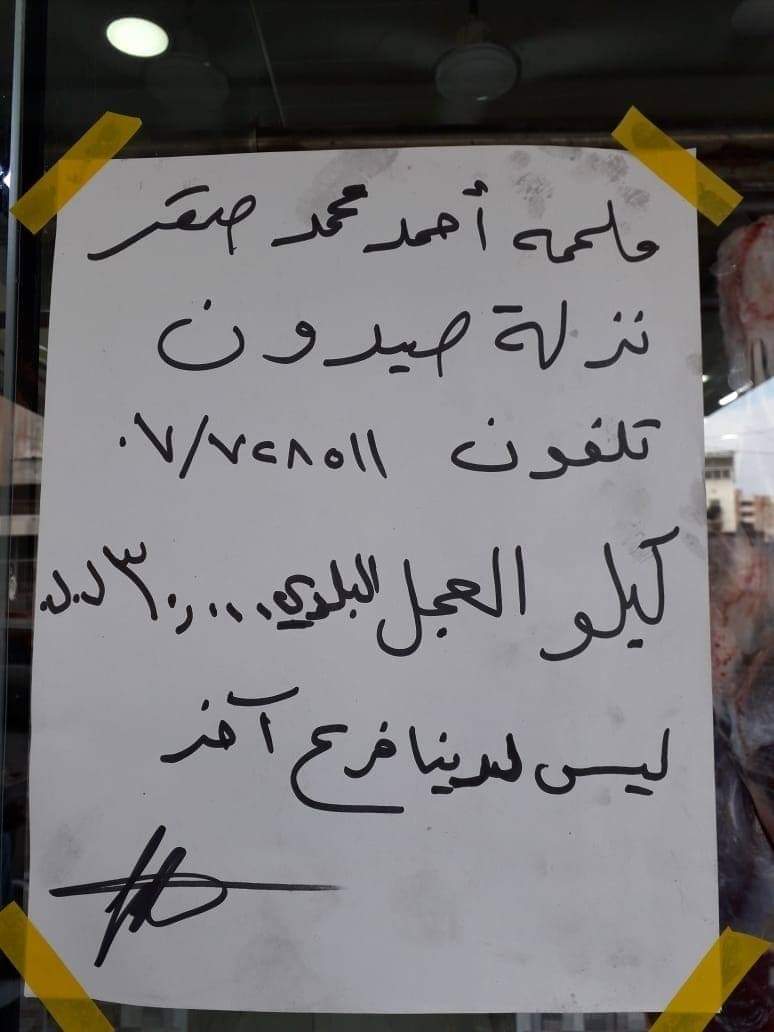 ملحمه أحمد محمد صقر
نزلة صيدون
تلفون ٠٧/٧٢٨٥١١
كيلو العجل البلدي ٣٠,٠٠٠ ل.ل.
ليس لدينا فرع آخر